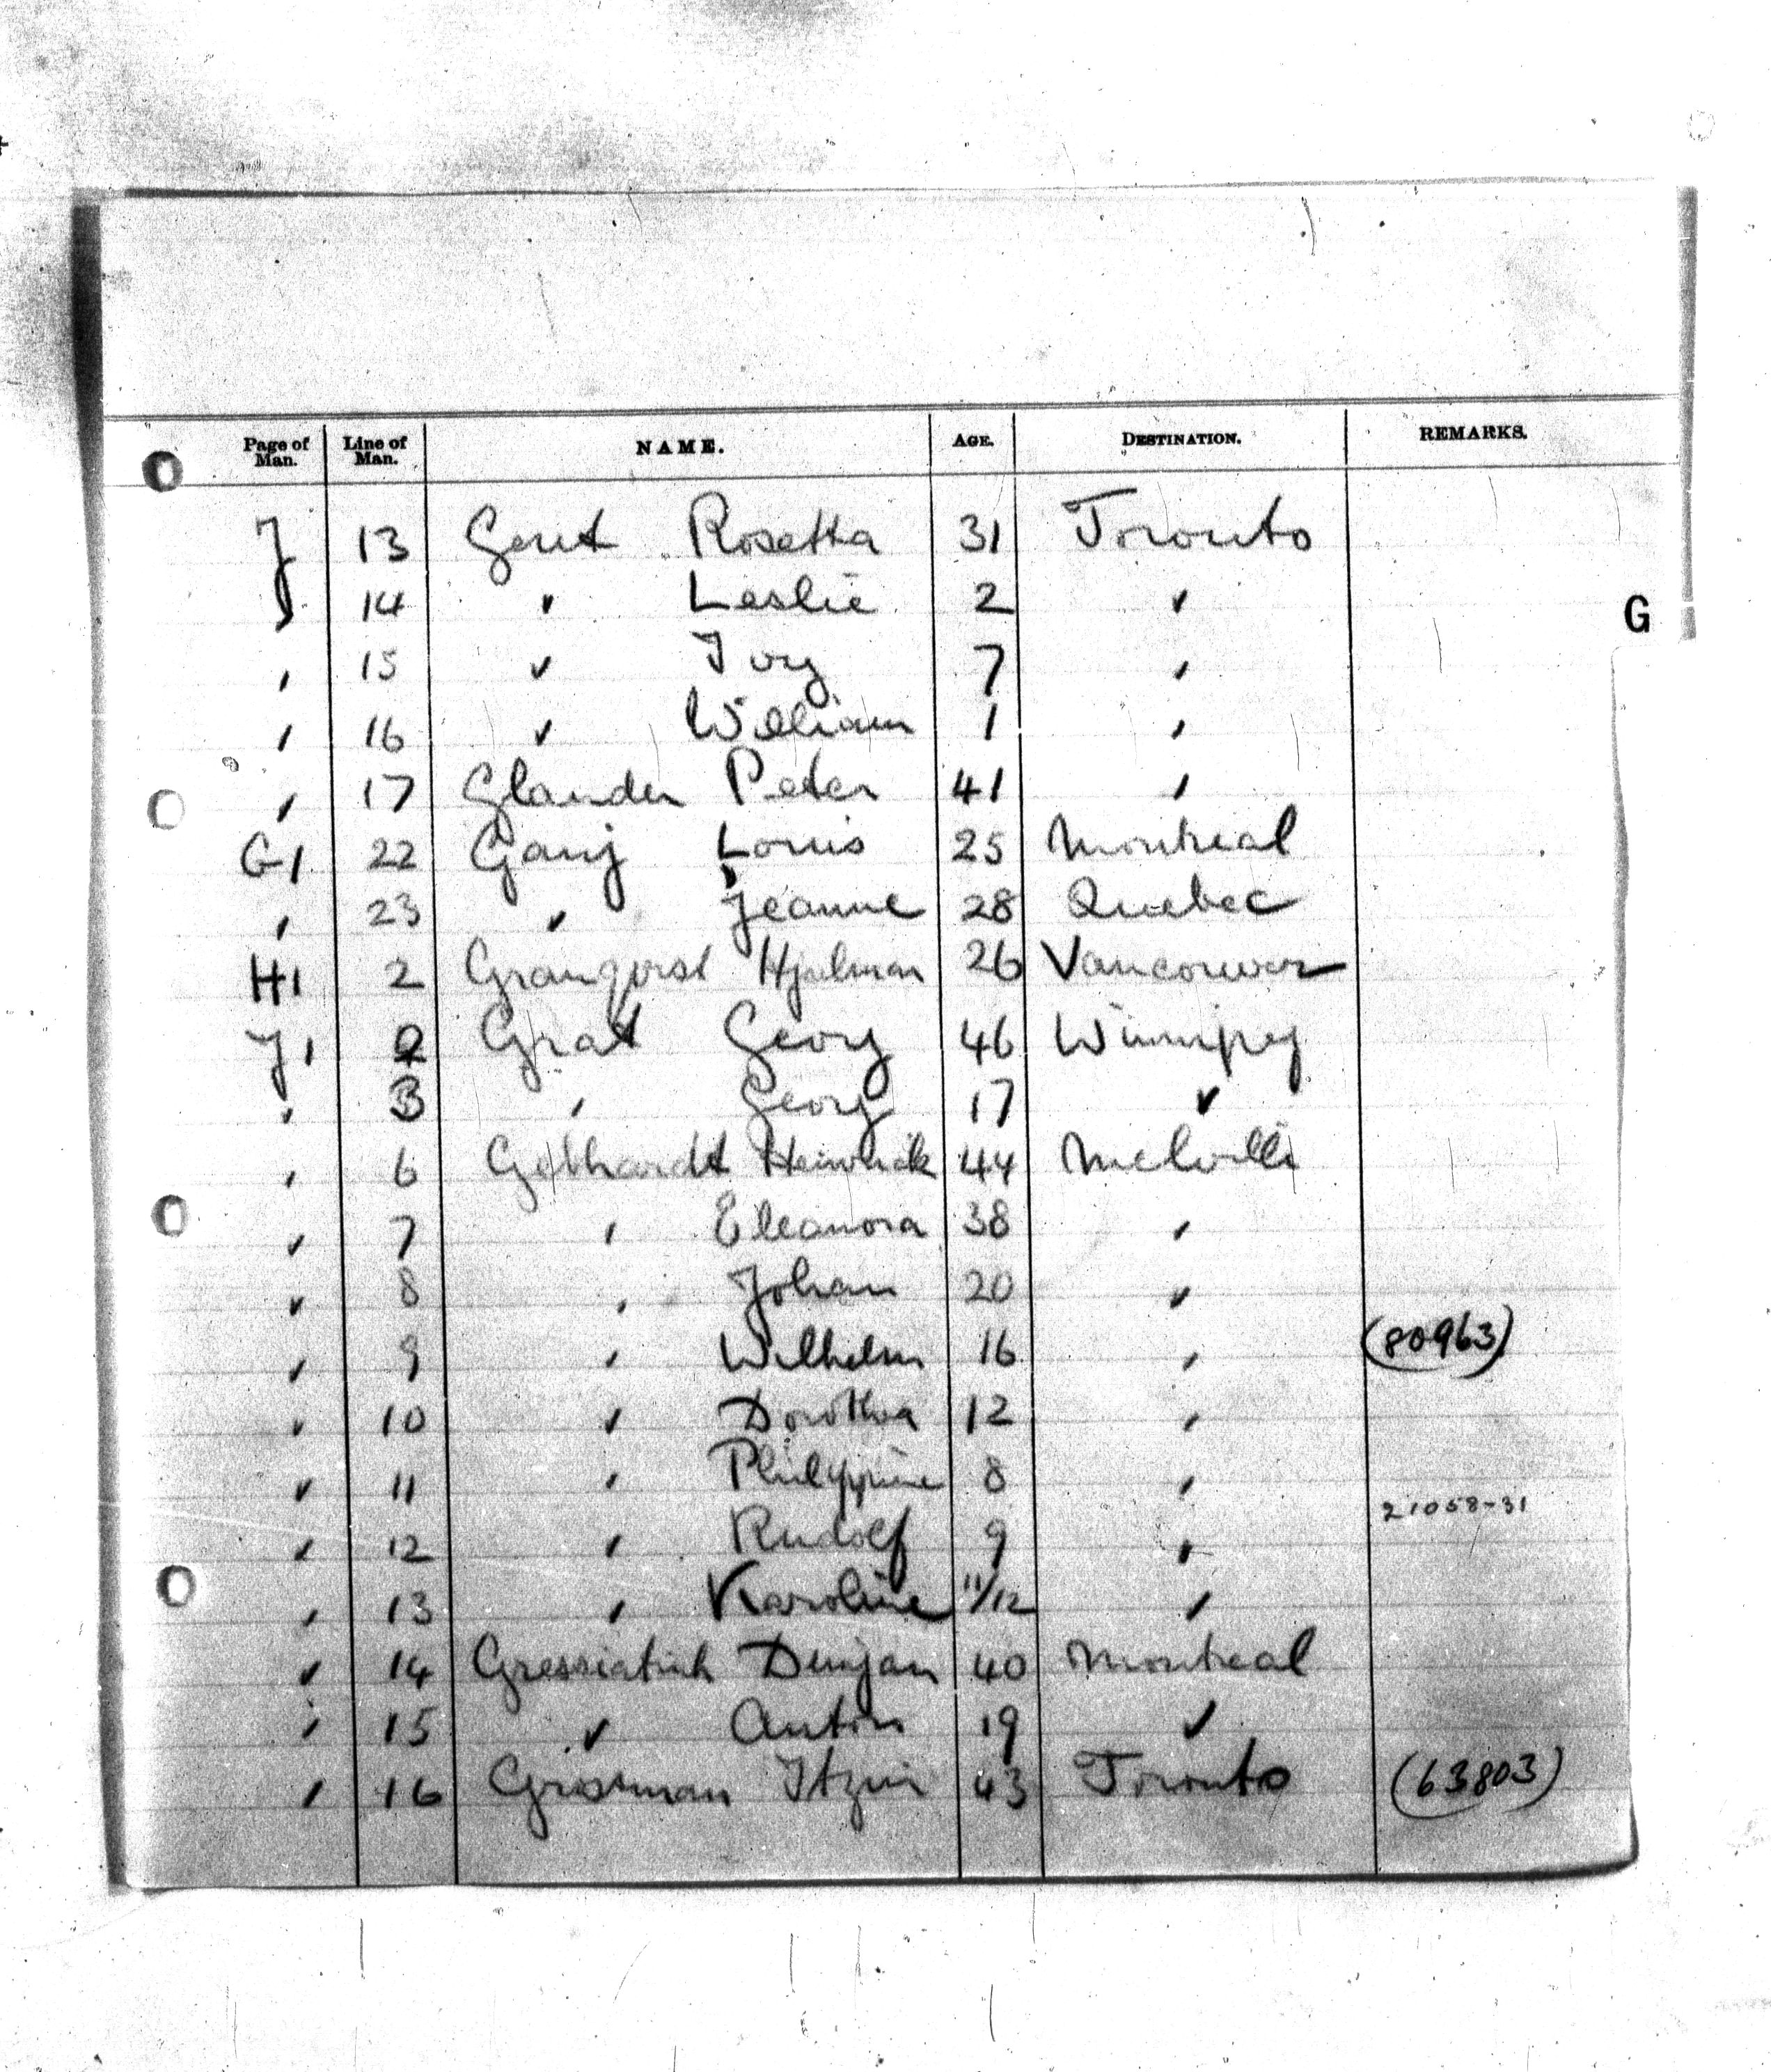 Page of Man. Line of Man. NAME. AGE. DESTINATION. REMARKS.
J 13 Gent Rosetta 31 Toronto
G
" 14 " Leslie 2 "
" 15 " Ivy 7 "
" 16 " William 1 "
" 17 Glander Peter 41 "
G1 22 Louis 25 Montreal
" 23 " Jeanne 28 Quebec
H1 2 Granqvist Hjalmar 26 Vancouver
J1 2 Georg 46 Winnipeg
" 3 " Georg 17 "
" 6 Gebhardt Heinrich 44 Melville
" 7 " Eleanora 38 "
" 8 " Johan 20 "
" 9 " Wilhelm 16 " (80963)
" 10 " Dorothea 12 "
" 11 " Philippine 8 "
21058-31
" 12 " Rudolf 9 "
" 13 " Karoline 11/12 "
" 14 40 Montreal
" 15 " Anton 19 "
" 16 Grosman 43 Toronto (63803)